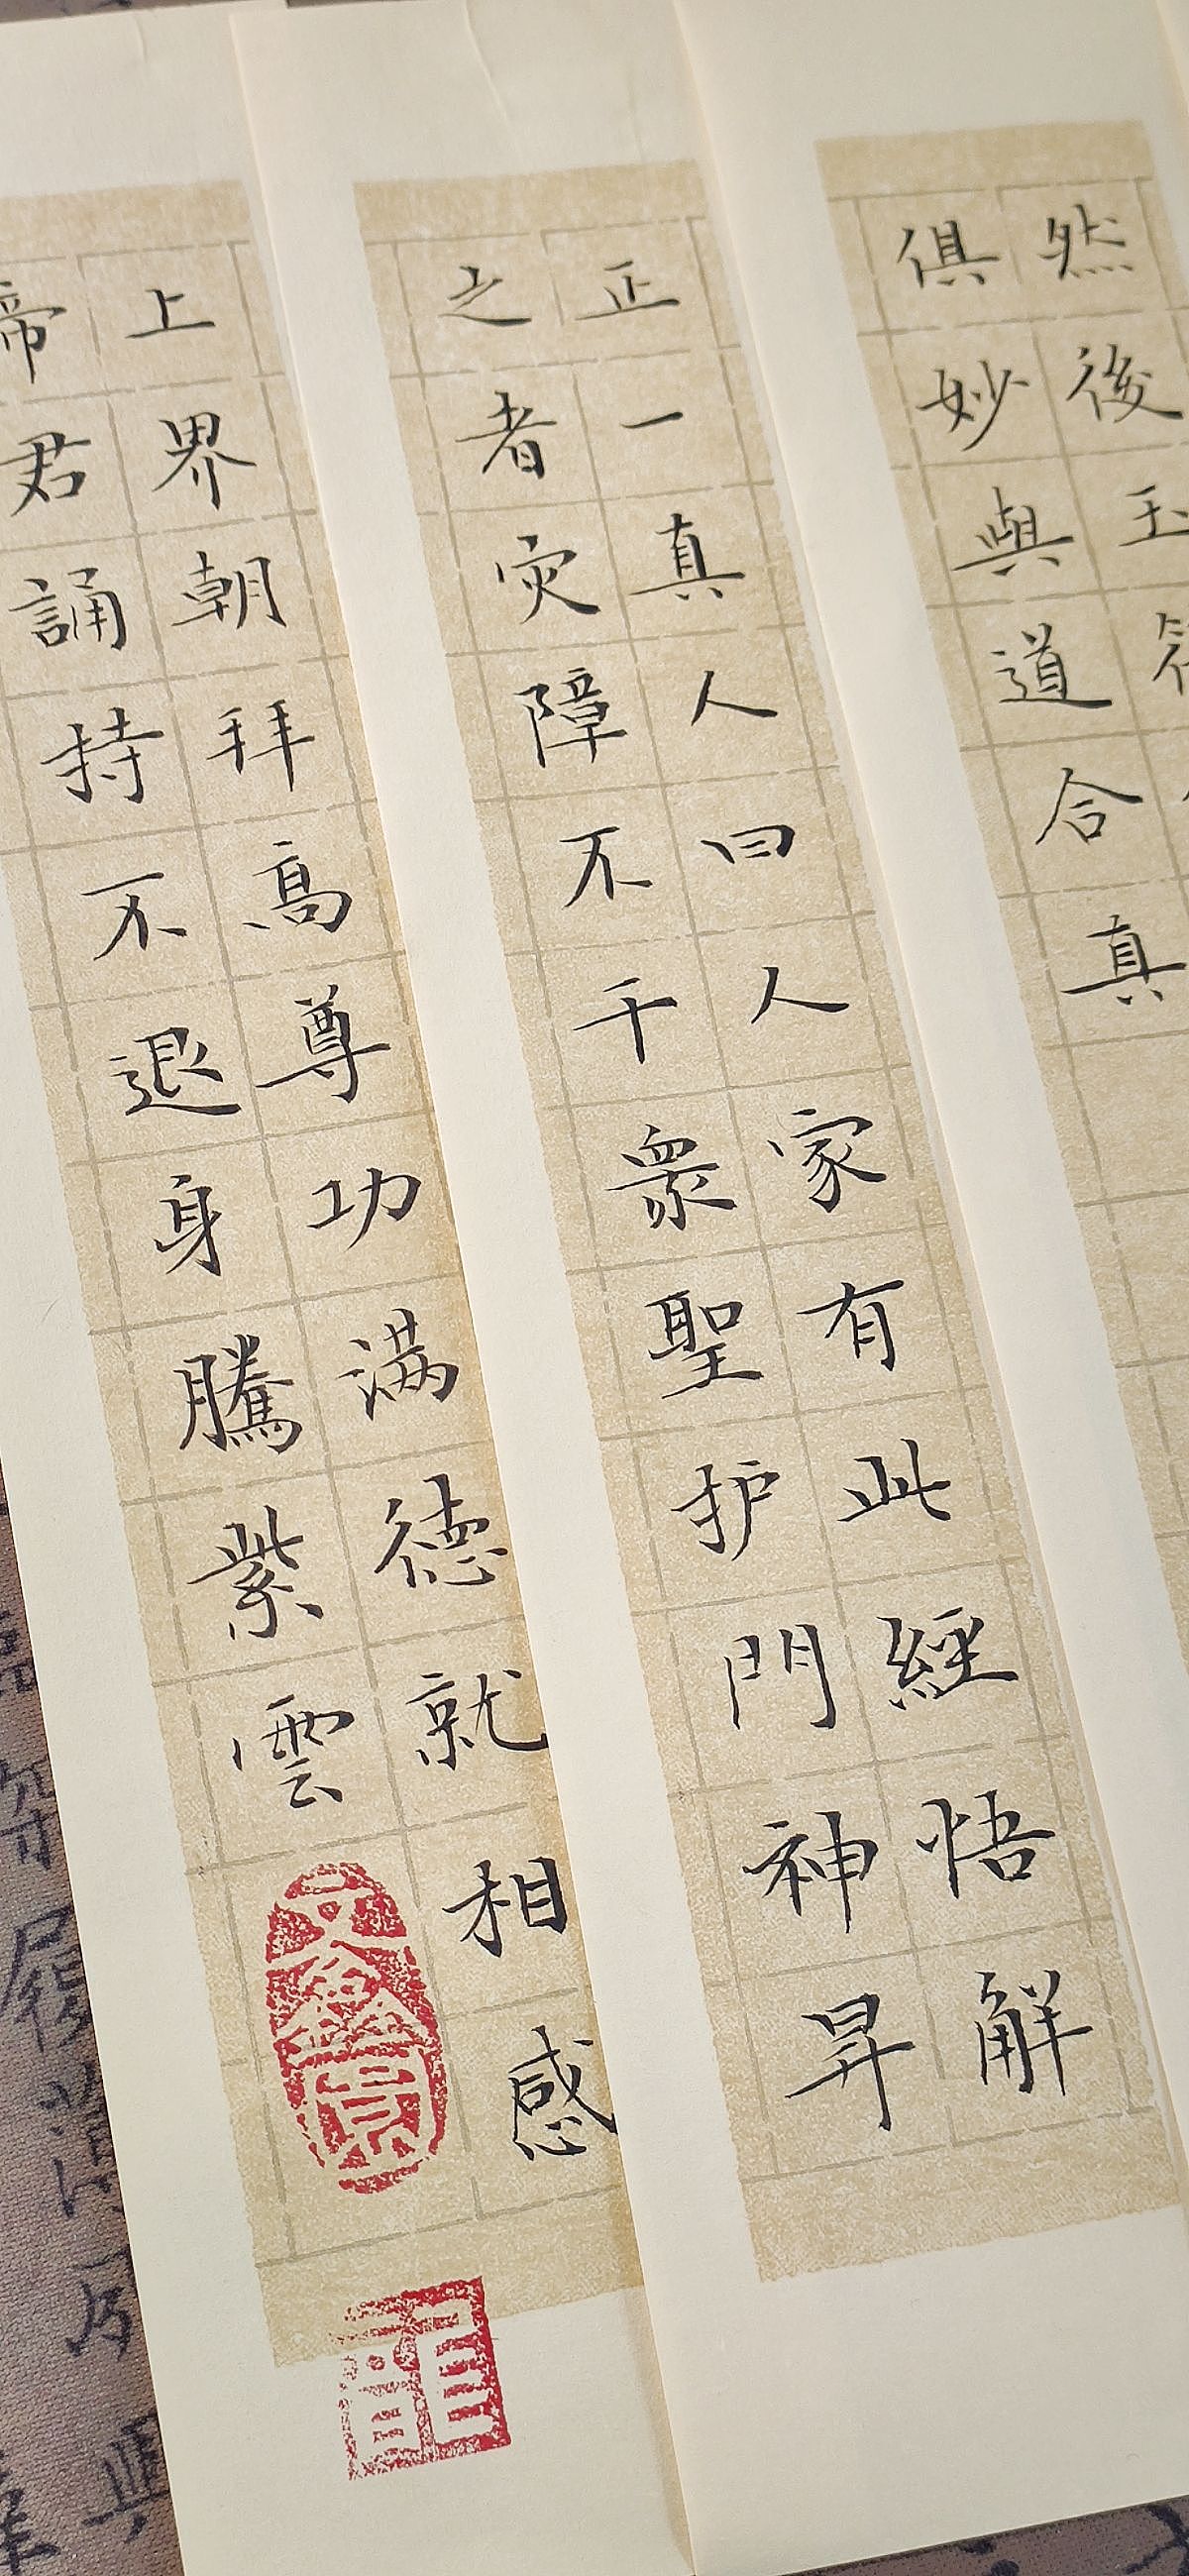 然後玉符
俱妙與道合真
正一真人曰人家有此經悟解
之者灾障不干衆聖护門神昇
上界朝拜高尊功满德就相感
帝君誦持不退身騰紫雲